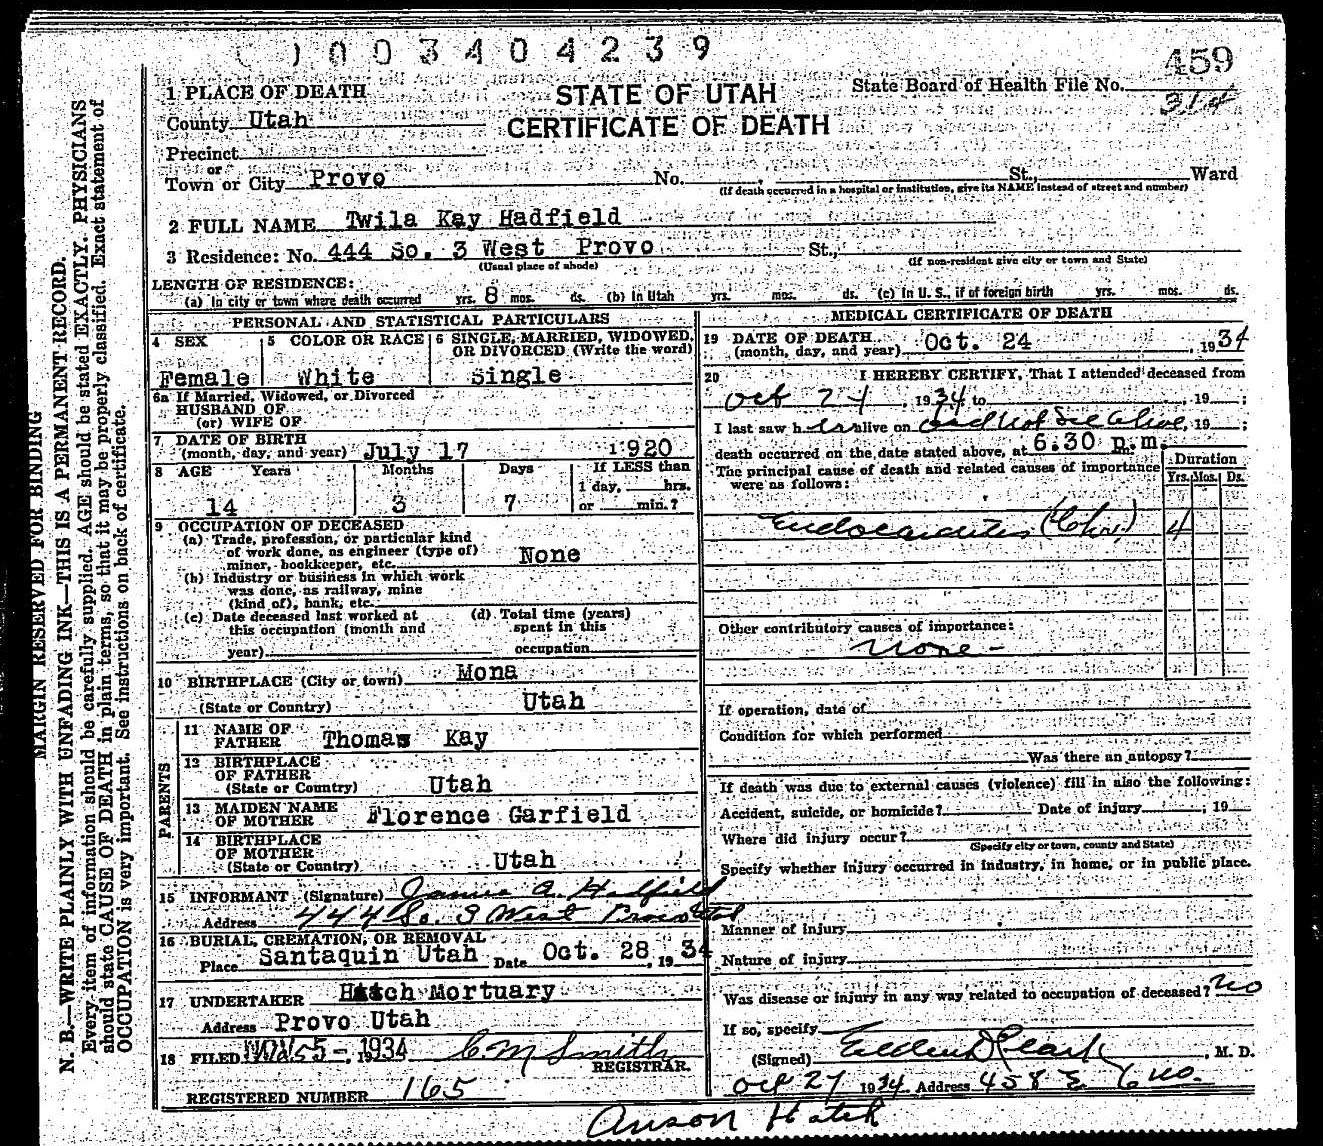 0 0 3 4 0 4 2 3 9
459
State Board of Health File No.
314
1 PLACE OF DEATH
STATE OF UTAH
CERTIFICATE OF DEATH
County Utah
Precinct
or
Town or City Provo No. St., Ward
(If death occurred in a hospital or institution, give its NAME instead of street and number)
2 FULL NAME Twila Kay Hadfield
3 Residence: No. 444 So. 3 West Provo St.,
(Usual place of abode) (If non-resident give city or town and State)
LENGTH OF RESIDENCE:
(a) In city or town where death occurred yrs. 8 mos. ds. (b) In Utah yrs. mos. ds. (c) In U. S., if of foreign birth yrs. mos. ds.
PERSONAL AND STATISTICAL PARTICULARS
4 SEX 5 COLOR OR RACE 6 SINGLE, MARRIED, WIDOWED, OR DIVORCED (Write the word)
Female White Single
6a If Married, Widowed, or Divorced
HUSBAND OF
(or) WIFE OF
7 DATE OF BIRTH
(month, day, and year) July 17 1920
8 AGE Years Months Days If LESS than
1 day, hrs.
14 3 7 or min.?
9 OCCUPATION OF DECEASED
(a) Trade, profession, or particular kind
of work done, as engineer (type of)
miner, bookkeeper, etc. None
(b) Industry or business in which work
was done, as railway, mine
(kind of), bank, etc.
(c) Date deceased last worked at (d) Total time (years)
this occupation (month and spent in this
year) occupation
10 BIRTHPLACE (City or town) Mona
(State or Country) Utah
PARENTS
11 NAME OF
FATHER Thomas Kay
12 BIRTHPLACE
OF FATHER
(State or Country) Utah
13 MAIDEN NAME
OF MOTHER Florence Garfield
14 BIRTHPLACE
OF MOTHER
(State or Country) Utah
15 INFORMANT (Signature) James A. Hadfield
Address 444 So. 3 West Provo Utah
16 BURIAL, CREMATION, OR REMOVAL
Place Santaquin Utah Date Oct. 28, 1934
17 UNDERTAKER Hatch Mortuary
Address Provo Utah
18 FILED NOV 5-, 1934 C M Smith
REGISTRAR.
REGISTERED NUMBER 165
MEDICAL CERTIFICATE OF DEATH
19 DATE OF DEATH
(month, day, and year) Oct. 24, 1934
20 I HEREBY CERTIFY, That I attended deceased from
Oct 24, 1934 to , 19 ;
I last saw her alive on Did Not See Alive, 19 ;
death occurred on the date stated above, at 6.30 p.m.
The principal cause of death and related causes of importance
were as follows:
Duration
Yrs. Mos. Ds.
Endocarditis (Chr.) 4
Other contributory causes of importance:
None -
If operation, date of
Condition for which performed
Was there an autopsy?
If death was due to external causes (violence) fill in also the following:
Accident, suicide, or homicide? Date of injury , 19
Where did injury occur?
(Specify city or town, county and State)
Specify whether injury occurred in industry, in home, or in public place.
Manner of injury
Nature of injury
Was disease or injury in any way related to occupation of deceased? No
If so, specify
(Signed) Clark, M. D.
Oct 27 1934 Address 458 E. 6 No.
Anson Hatch
MARGIN RESERVED FOR BINDING
N. B.—WRITE PLAINLY WITH UNFADING INK—THIS IS A PERMANENT RECORD.
Every item of information should be carefully supplied. AGE should be stated EXACTLY. PHYSICIANS
should state CAUSE OF DEATH in plain terms, so that it may be properly classified. Exact statement of
OCCUPATION is very important. See instructions on back of certificate.